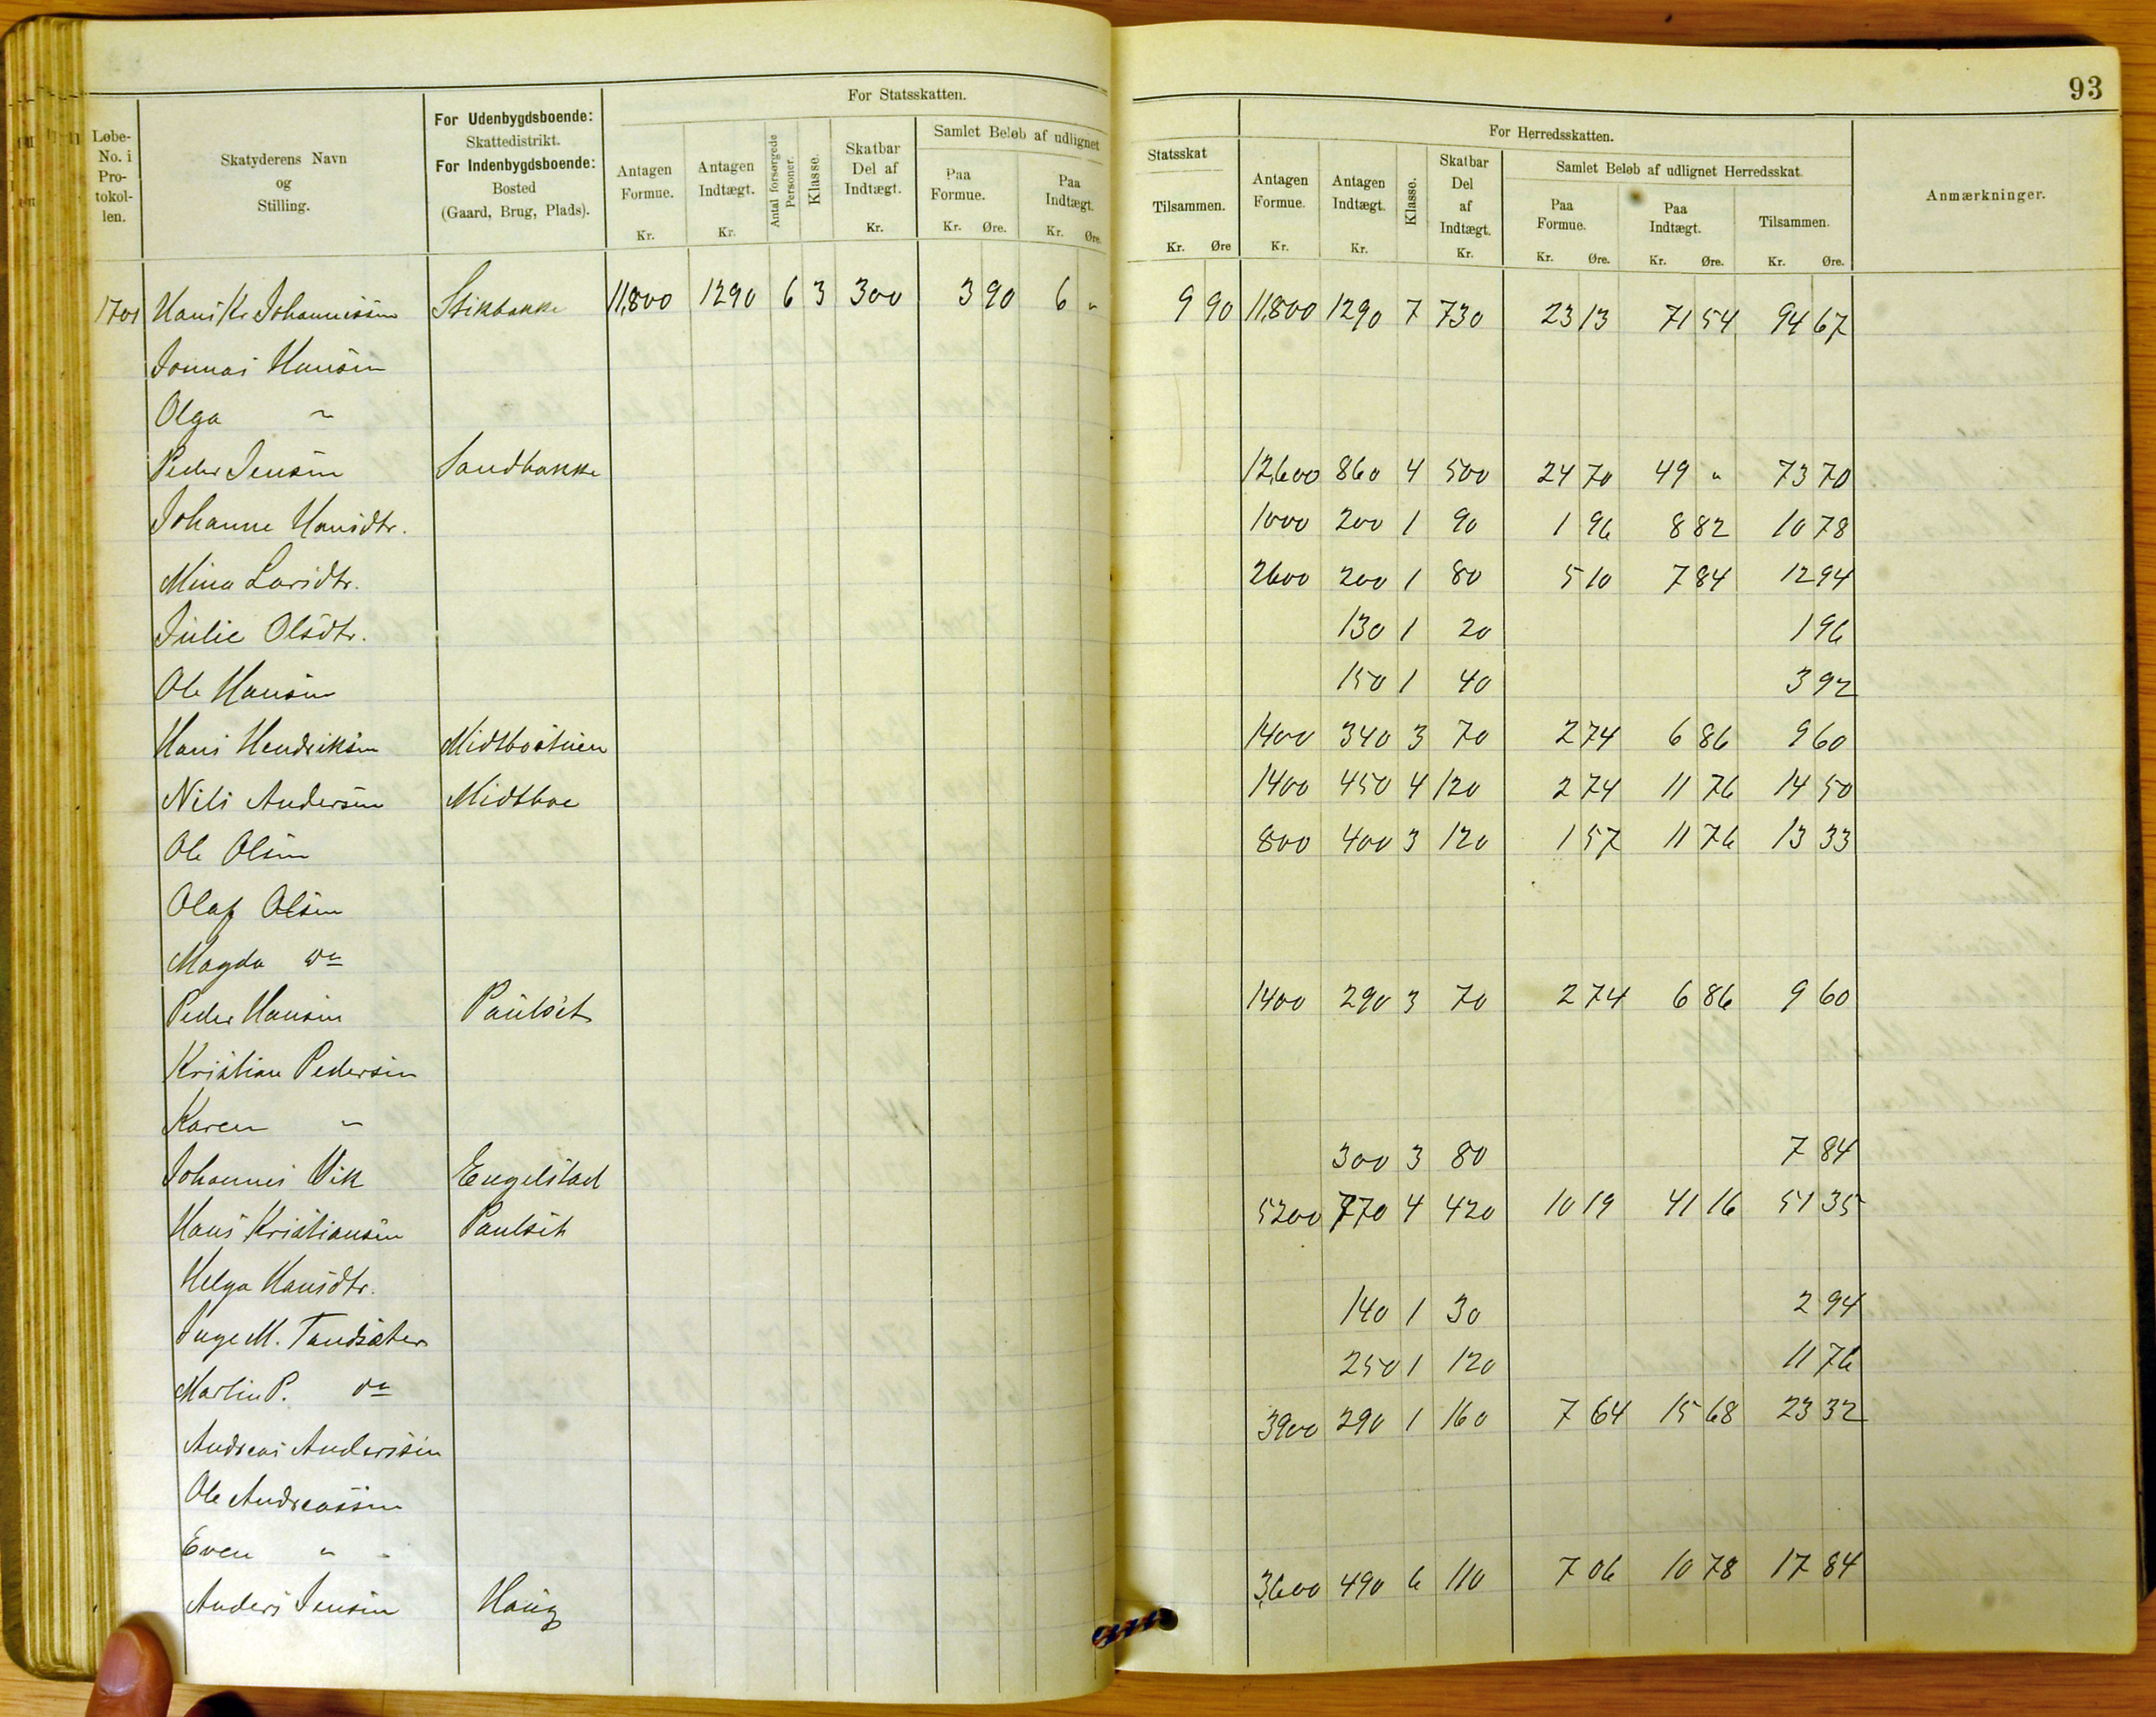 93
For Statsskatten.
For Herredsskatten.
Løbe-No. i Pro-tokol-len.
Skatyderens Navn og Stilling.
For Udenbygdsboende: Skattedistrikt. For Indenbygdsboende: Bosted (Gaard, Brug, Plads).
Antagen Formue. Kr.
Antagen Indtægt. Kr.
Antal forsørgede Personer.
Klasse.
Skatbar Del af Indtægt. Kr.
Samlet Beløb af udlignet
Paa Formue. Kr. Øre.
Paa Indtægt. Kr. Øre.
Statsskat
Tilsammen. Kr. Øre
Antagen Formue. Kr.
Antagen Indtægt. Kr.
Klasse.
Skatbar Del af Indtægt. Kr.
Samlet Beløb af udlignet Herredsskat.
Paa Formue. Kr. Øre.
Paa Indtægt. Kr. Øre.
Tilsammen. Kr. Øre.
Anmærkninger.
1701 Hans Kr Johannessen Stikbakke 11,800 1290 6 3 300 3 90 6 " 9 90 11,800 1290 7 730 23 13 71 54 94 67
Jonnas Hansen
Olga "
Peder Jensen Sandbakke 12,600 860 4 500 24 70 49 " 73 70
Johanne Hansdtr. 1000 200 1 90 1 96 8 82 10 78
Mina Larsdtr. 2600 200 1 80 5 10 7 84 12 94
Julie Olsdtr. 130 1 20 1 96
Ole Hansen 150 1 40 3 92
Hans Hendriksen Midtbøstuen 1400 340 3 70 2 74 6 86 9 60
Nils Andersen Midtbøe 1400 450 4 120 2 74 11 76 14 50
Ole Olsen 800 400 3 120 1 57 11 76 13 33
Olaf Olsen
Magda do
Peder Hansen Paulset 1400 290 3 70 2 74 6 86 9 60
Kristian Pedersen
Karen "
Johannes Vik Engelstad 300 3 80 7 84
Hans Kristiansen Paulset 5200 770 4 420 10 19 41 16 51 35
Helga Hansdtr.
Inge M. Tandsæther 140 1 30 2 94
Martin P. do 250 1 120 11 76
Andreas Anderssen 3900 290 1 160 7 64 15 68 23 32
Ole Andreassen
Even " "
Anders Jensen Haug 3,600 490 6 110 7 06 10 78 17 84